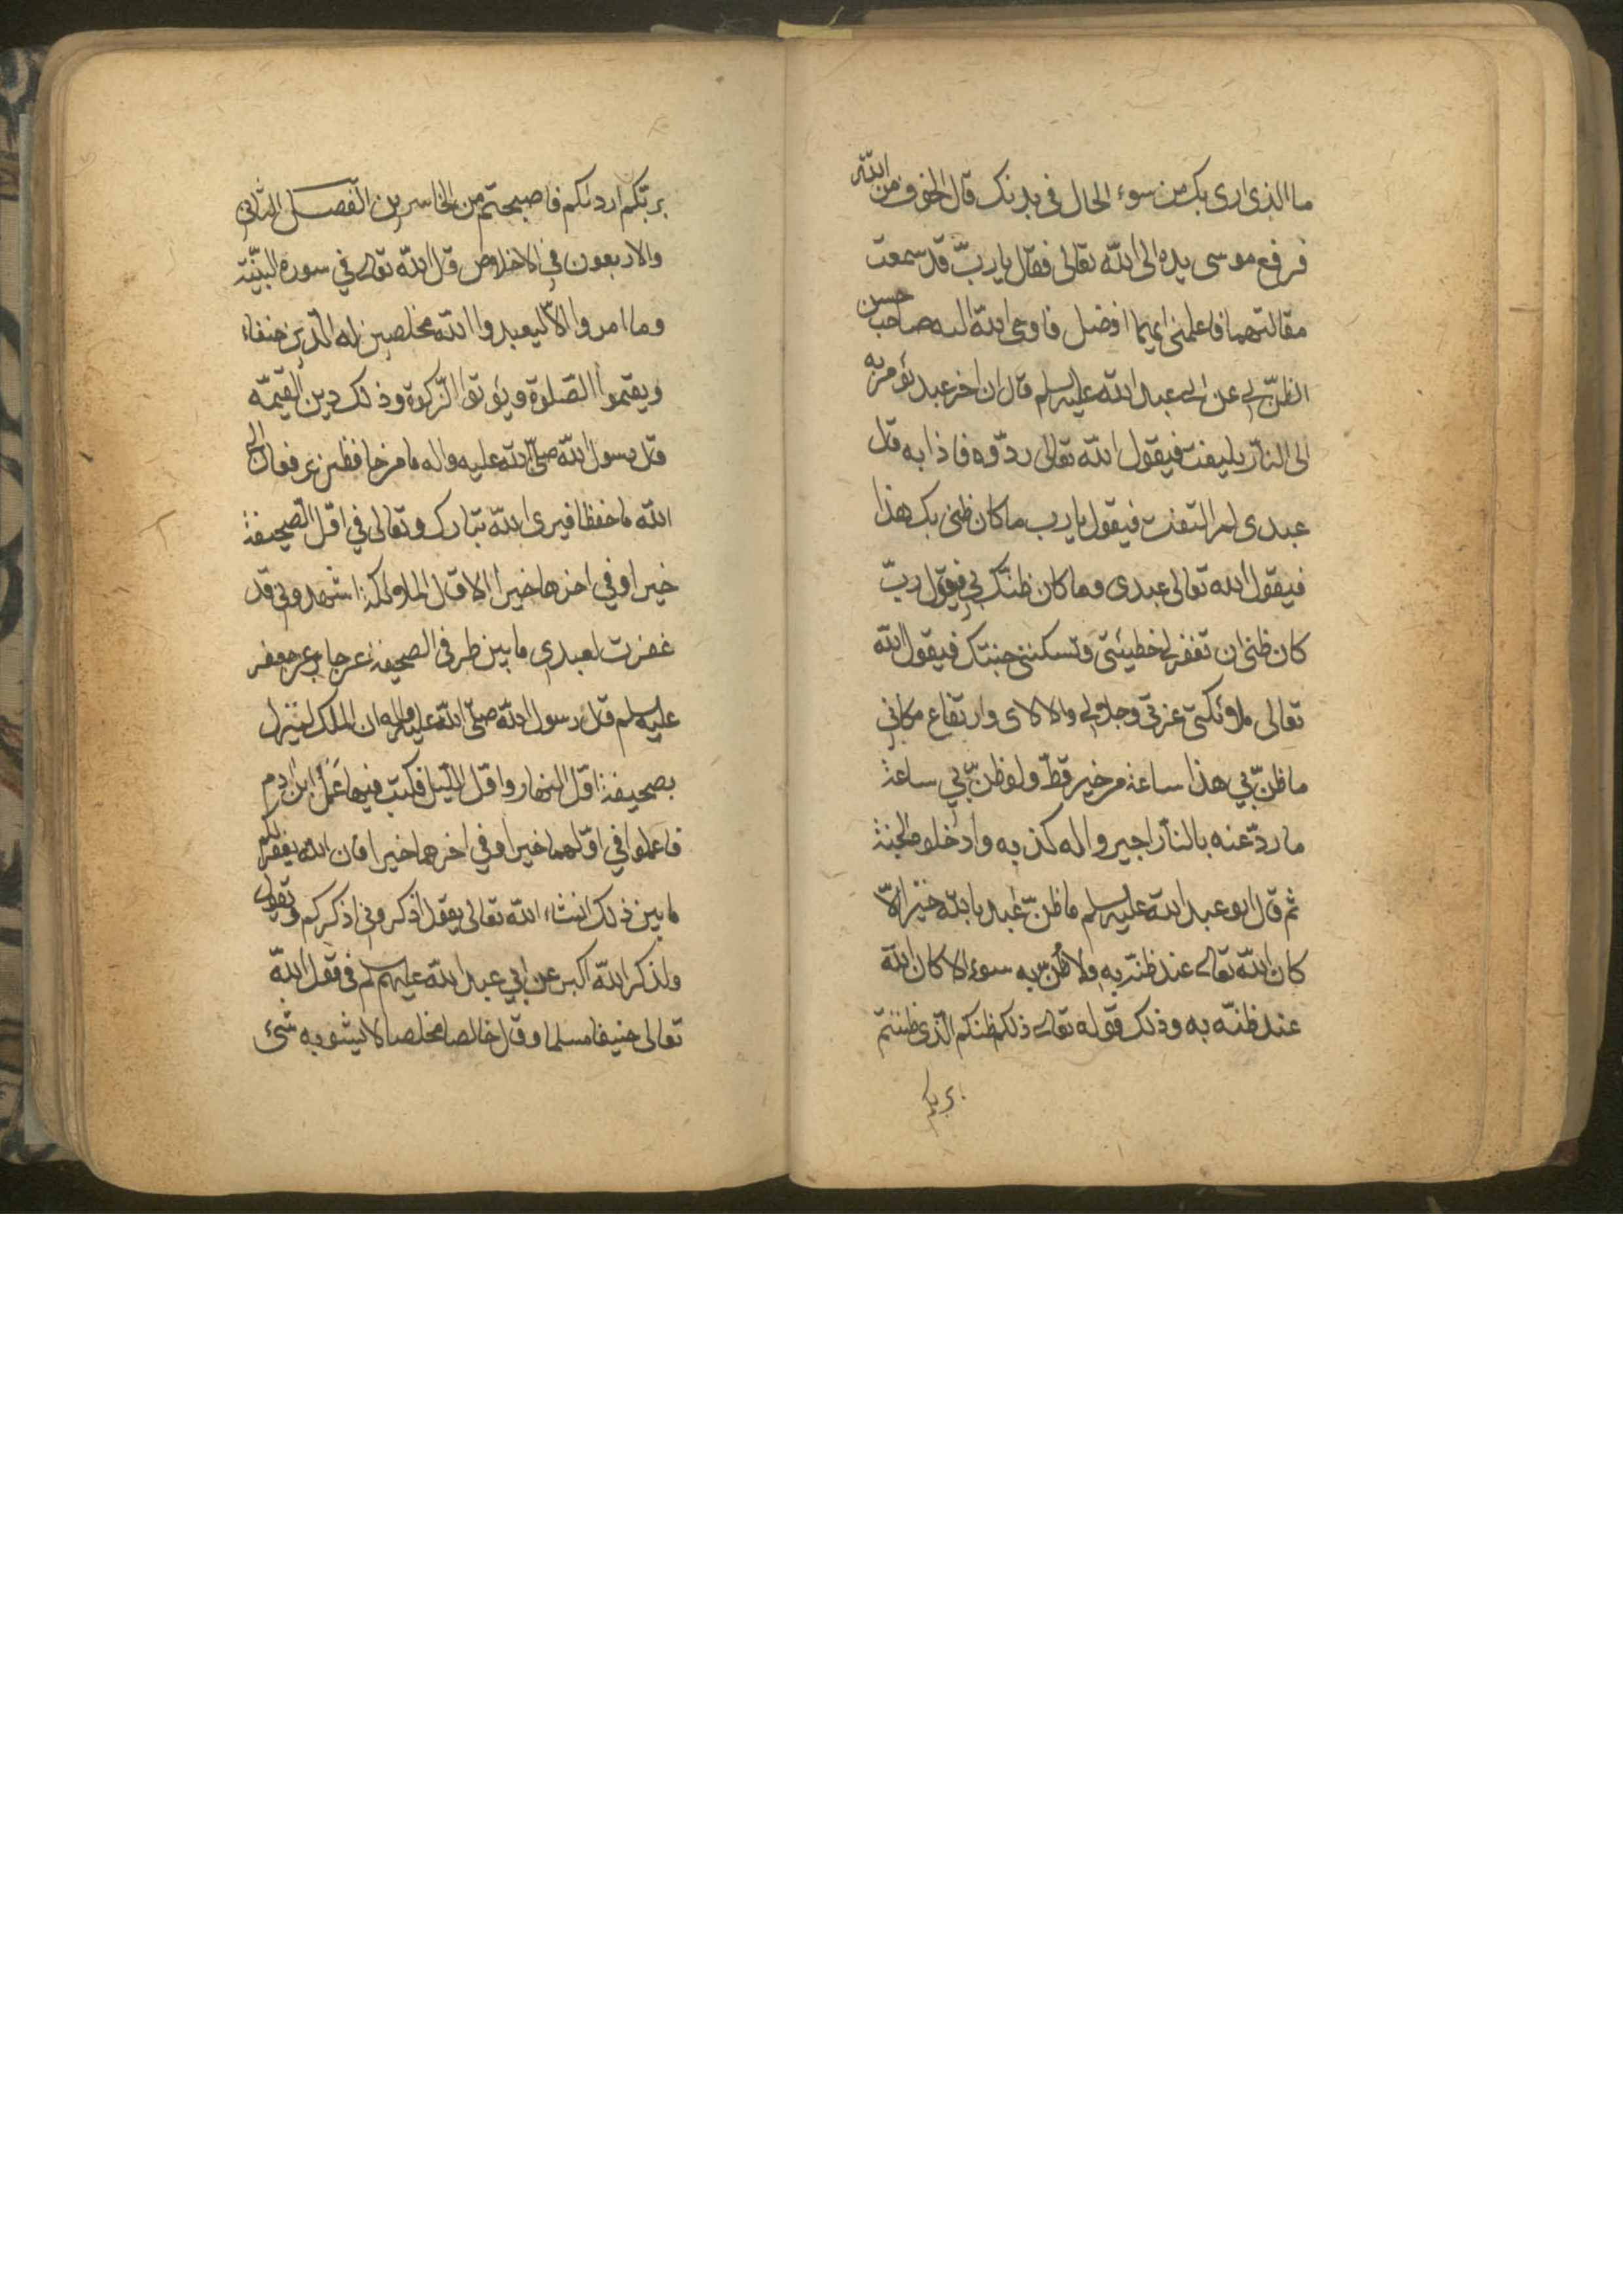 ما الذی اری بک من سوء الحال فی بدنک قال الخوف من الله
فرفع موسی یده الی الله تعالی فقال یا ربّ قد سمعت
مقالتهما فاعلمنی ایهما افضل فاوحی الله الیه صاحب حسن
الظنّ بی عن ابی عبد الله علیه السلم قال ان اخر عبد یؤمر به
الی النار یلیفت فیقول الله تعالی ردّوه فاذا به قال
عبدی لم التفت فیقول یا رب ما کان ظنی بک هذا
فیقول الله تعالی عبدی وما کان ظنّک بی فیقول ربّ
کان ظنی ان تغفر لی خطیئتی وتسکننی جنتک فیقول الله
تعالی ملائکتی عزتی وجلالی والالای وارتفاع مکانی
ما ظنّ بی هذا ساعة من خیر قطّ ولو ظنّ بی ساعة
ما ردّعنه بالنار اجیر واله کذبه وادخلوه الجنة
ثم قال ابو عبد الله علیه السلم ما ظنّ عبد بالله خیرا الاّ
کان الله تعالی عند ظنّه به ولا ظنّ به سوء الا کان الله
عند ظنّه به وذلک قوله تعالی ذلکم ظنکم الّذی ظننتم
بربکم
بربّکم اردیٰکم فاصبحتم من الخاسرین الفصل الثانی
والاربعون فی الاخلاص قال الله تعالی فی سورة البیّنة
وما امروا الاّ لیعبدوا الله مخلصین له الدّین حنفاء
ویقیموا الصّلوة ویؤتوا الزّکوة وذلک دین القیّمة
قال رسول الله صلّی الله علیه واله ما من حافظین یرفعان الی
الله ما حفظا فیری الله تبارک وتعالی فی اوّل الصحیفة
خیرا وفی اخرها خیرا الا قال الملائکة اشهدونی قد
غفرت لعبدی ما بین طرفی الصحیفة عن جابر عن جعفر
علیه السلم قال رسول الله صلّی الله علیه واله ان الملک لینزل
بصحیفة اوّل النهار واوّل اللّیل فکتب فیها عَمَلُ ابن ادم
فاعملوا فی اوّلهما خیرا وفی اخرهما خیرا فان الله یغفر لکم
ما بین ذلک انشاء الله تعالی یقول اذکرونی اذکرکم ویقول
ولذکر الله اکبر عن ابی عبد الله علیه السلم فی قول الله
تعالی حنیفا مسلما وقال خالصا مخلصا لا یشوبه شیء